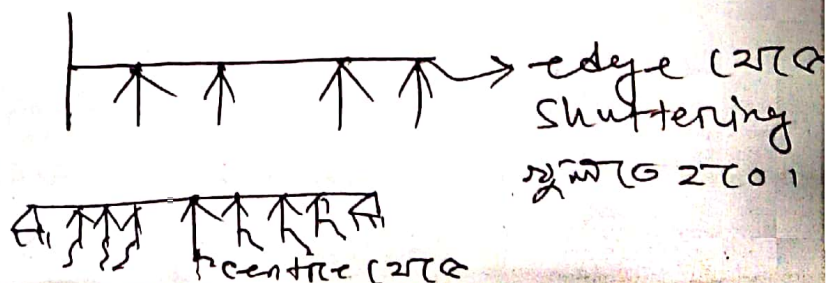 edge থেকে
Shuttering
খুলতে হবে।
centre থেকে